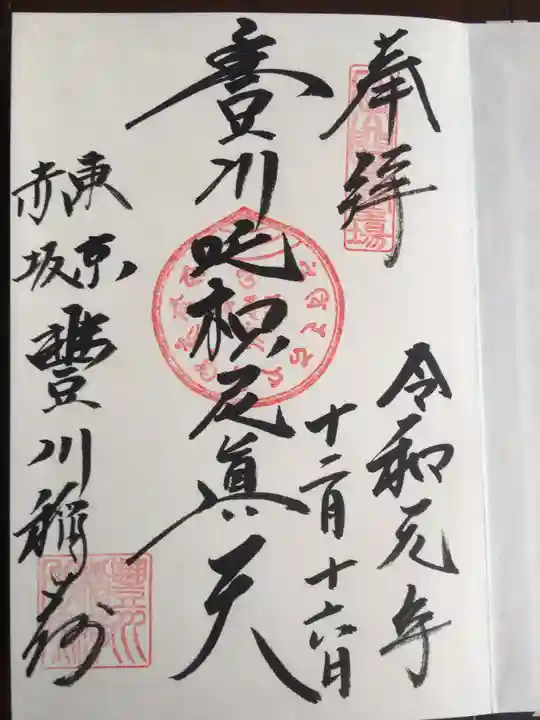 奉拝
令和元年
十二月十六日
豊川吒枳尼眞天
東京
赤坂
豊川稲荷